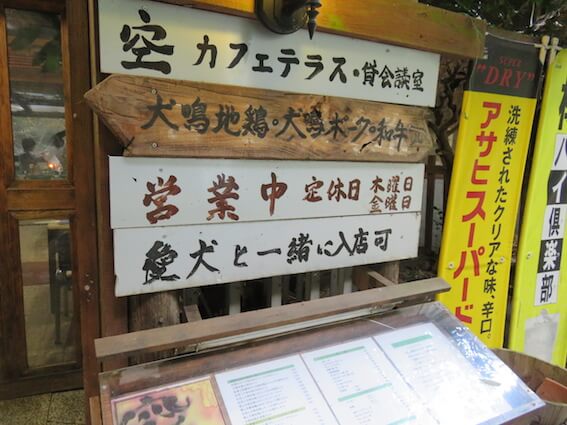 空 カフェテラス・貸会議室
犬鳴地鶏・犬鳴ポーク・和牛
営業中 定休日 木曜日 金曜日
愛犬と一緒に入店可
SUPER
"DRY"
洗練されたクリアな味、辛口。
アサヒスーパード
ハイ倶楽部